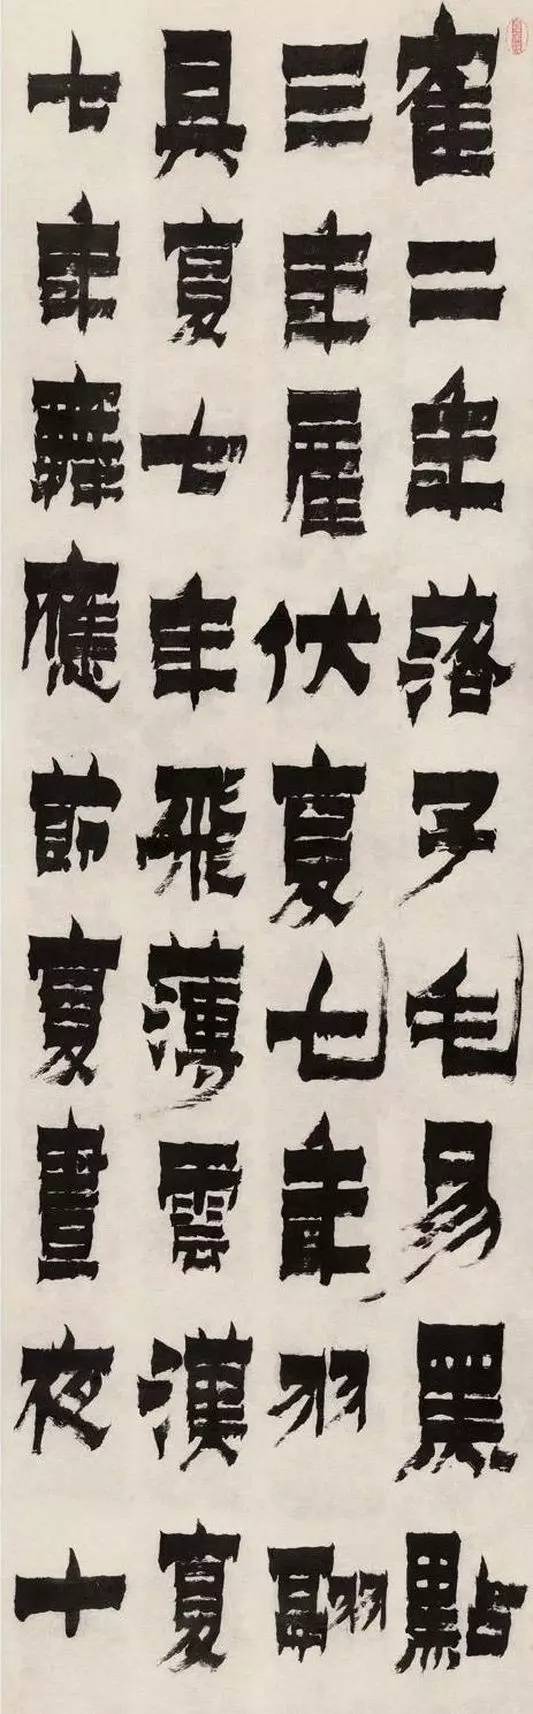 隺二年落子毛易黑點
三年雇伏复七年羽翮
具复七年飛薄雲漢复
七年舞應節复晝夜十